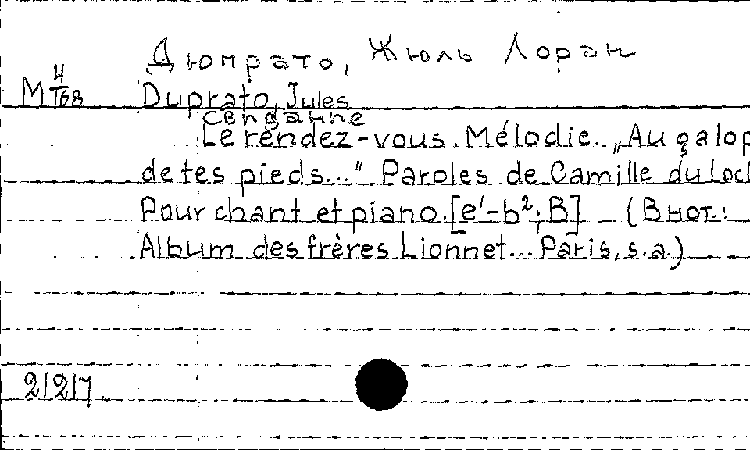 Дюпрато, Жюль Лоран
М 4/ТБВ Duprato, Jules
свидание
Le rendez-vous. Mélodie. „Au galop
de tes pieds..." Paroles de Camille du Locl
Pour chant et piano. [e'-b²; B] (В нот.:
Album des frères Lionnet... Paris, s.a.)
2/2/7